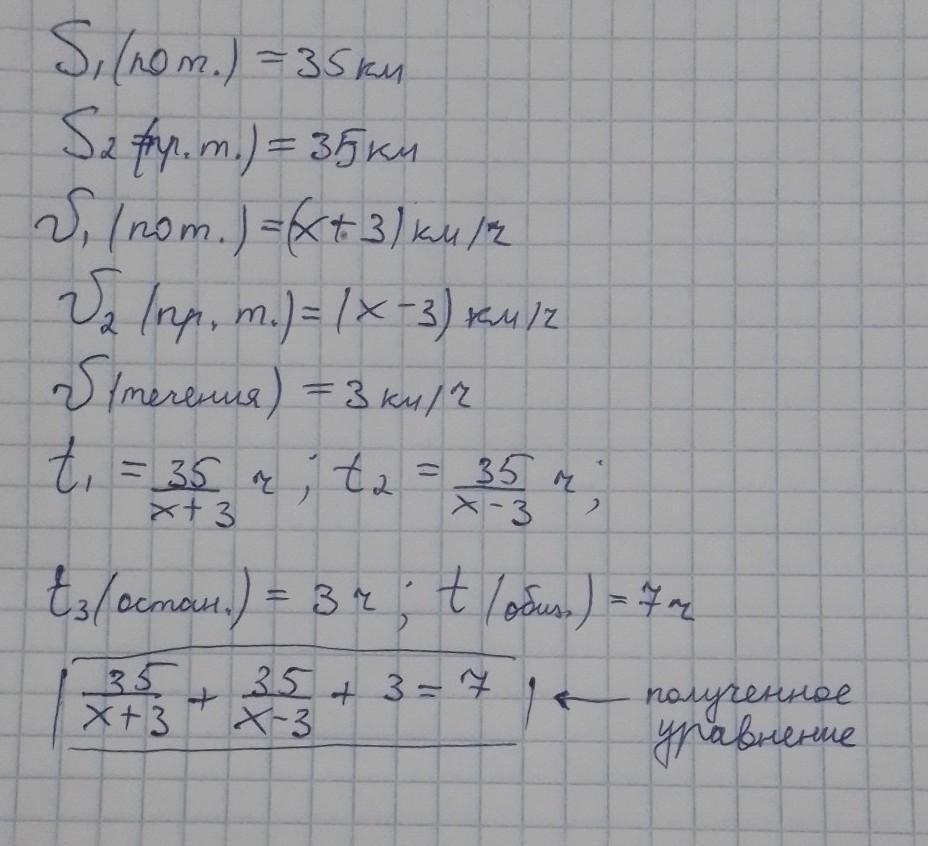 S₁(по т.) = 35 км
S₂(пр. т.) = 35 км
v₁(по т.) = (x+3) км/ч
v₂(пр. т.) = (x-3) км/ч
v(течения) = 3 км/ч
t₁ = 35/(x+3) ч; t₂ = 35/(x-3) ч;
t₃(остан.) = 3 ч; t(общ.) = 7 ч
35/(x+3) + 35/(x-3) + 3 = 7 ← полученное
уравнение